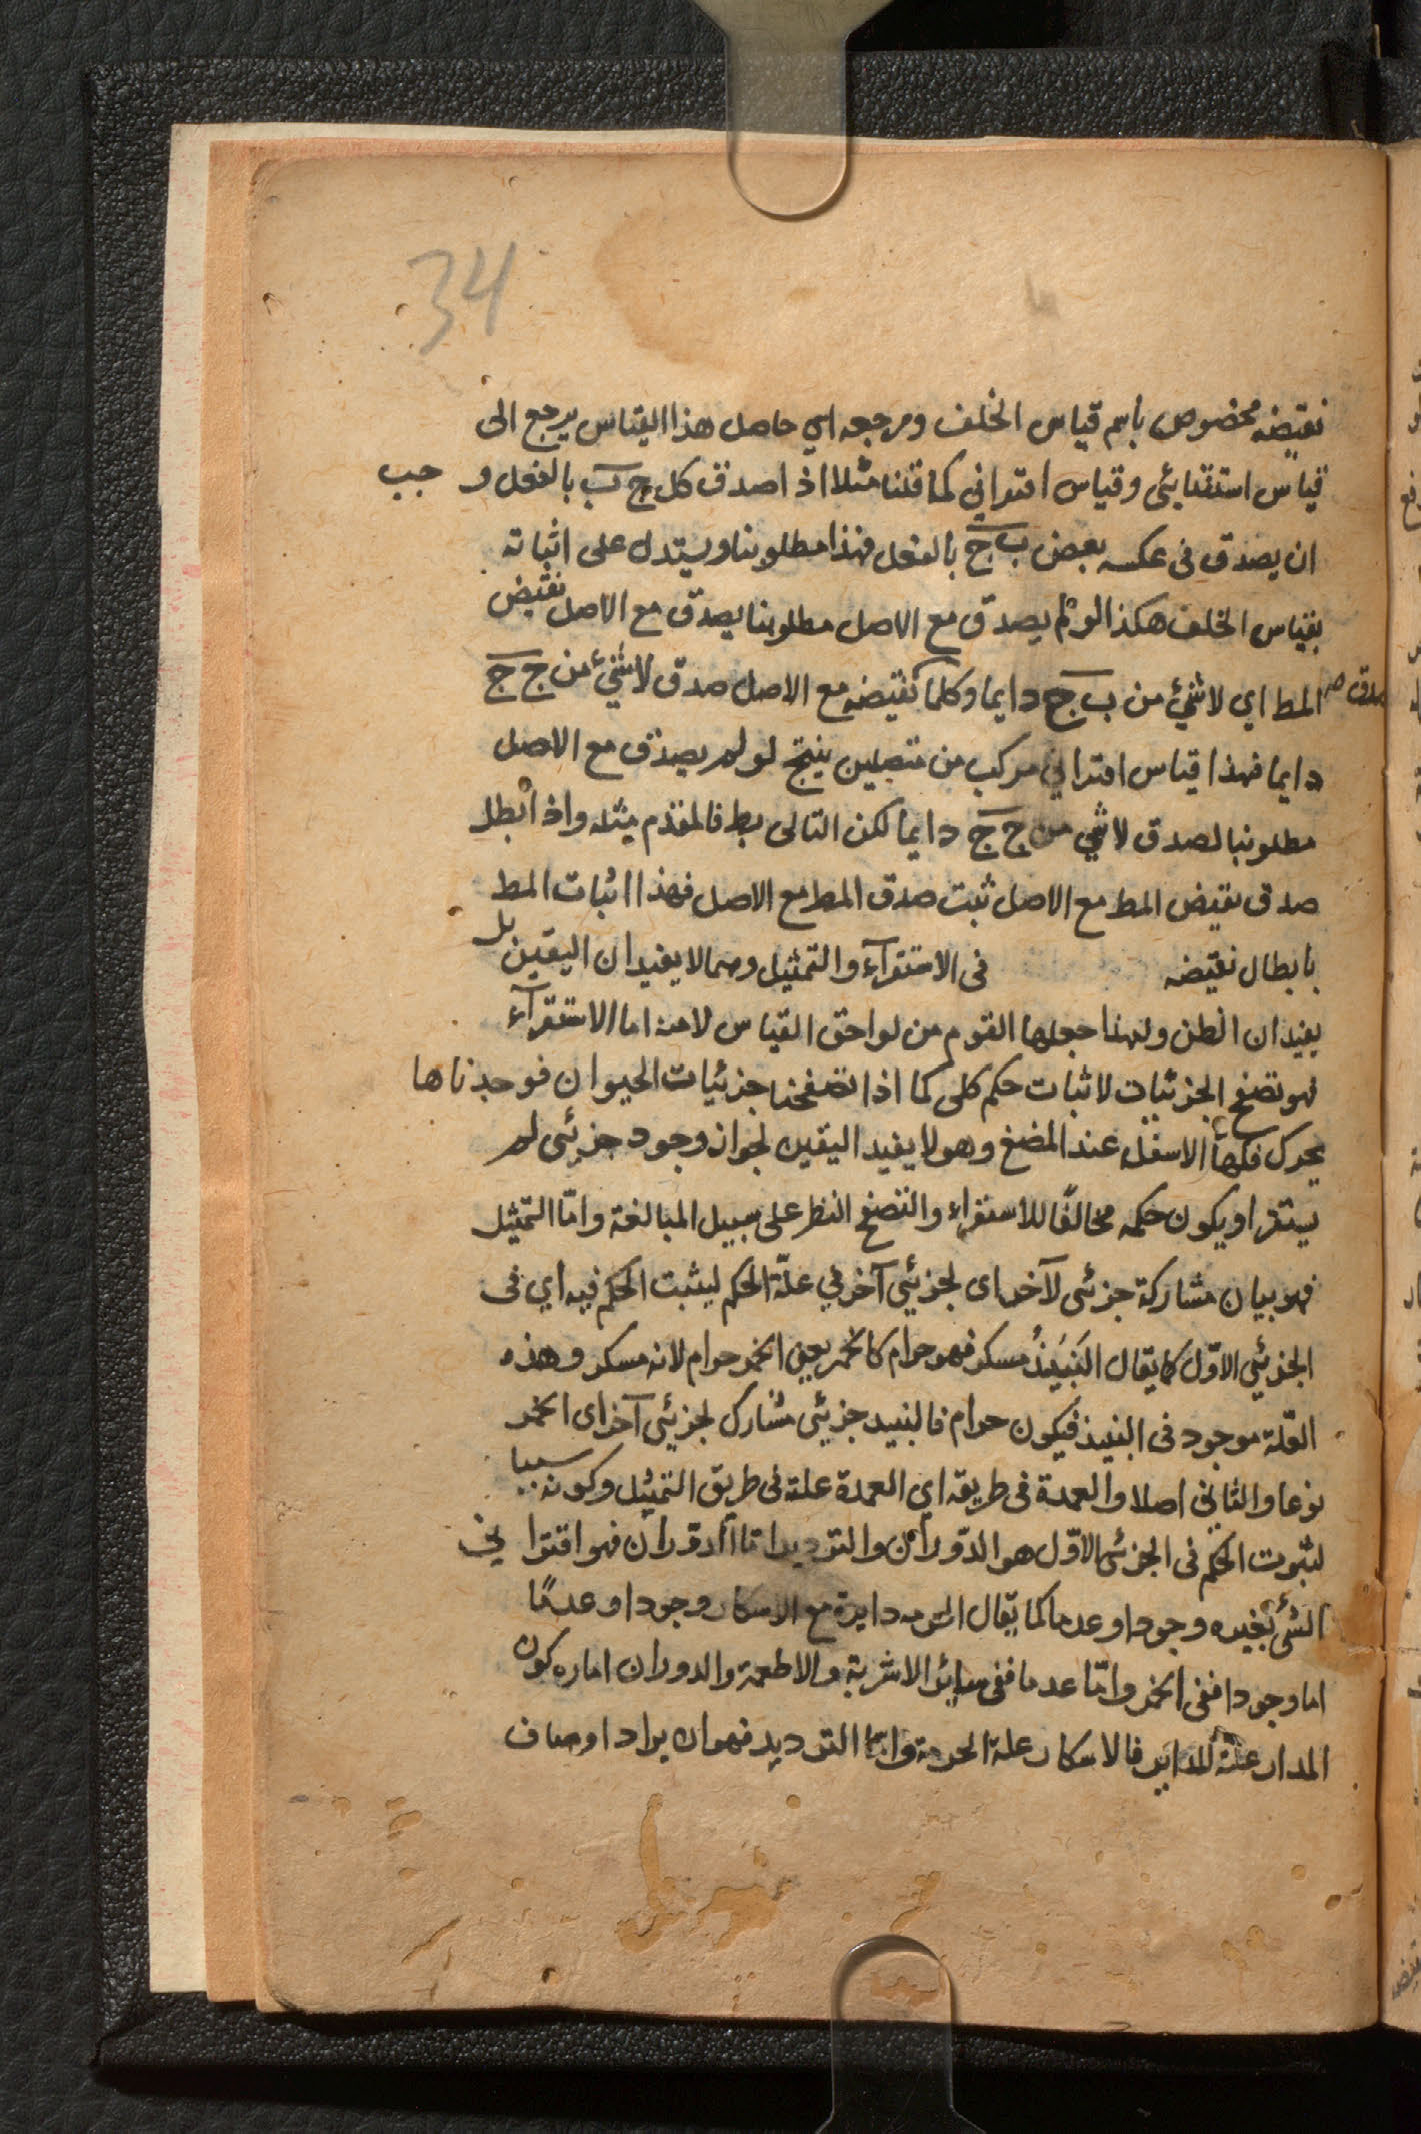 34
نقيضه مخصوص باسم قياس الخلف ومرجعه اي حاصل هذا القياس يرجع الى
قياس استثنائي وقياس اقتراني كما قلنا مثلا اذ اصدق كل ج ب بالفعل و جب
ان يصدق في عكسه بعض ب ج بالفعل فهذا مطلوبنا ويستدل على اثباته
بقياس الخلف هكذا لو لم يصدق مع الاصل مطلوبنا يصدق مع الاصل نقيض
المط اي لا شيء من ب ج دايما وكلما صدق نقيضه مع الاصل صدق لا شيء من ج ج
دايما فهذا قياس اقتراني مركب من متصلين ينتج لو لم يصدق مع الاصل
مطلوبنا لصدق لا شي من ج ج دايما لكن التالى بط فالمقدم مثله واذ ابطل
صدق نقيض المط مع الاصل ثبت صدق المط مع الاصل فهذا اثبات المط
بابطال نقيضه في الاستقرآء والتمثيل وهما لا يفيدان اليقين بل
يفيدان الظن ولهذا جعلها القوم من لواحق القياس لا منه اما الاستقرآء
فهو تصفح الجزئيات لاثبات حكم كلى كما اذا تصفحنا جزئيات الحيوان فوجدناها
يحرك فكها الاسفل عند المضغ وهو لا يفيد اليقين لجواز وجود جزئى لم
يستقر او يكون حكمه مخالفًا للاستقراء والتصفح النظر على سبيل المبالغة وامّا التمثيل
فهو بيان مشاركة جزئى لآخر اى لجزئي آخر في علّة الحكم ليثبت الحكم فيه اي في
الجزئي الاوّل كما يقال النَبيذُ مسكر فهو حرام كالخمر يعني الخمر حرام لانه مسكر وهذه
العلّة موجود في النبيذ فيكون حرام فالنبيد جزئي مشارك لجزئي آخر اى الخمر
نوعا والثاني اصلا والعمدة في طريقه اي العمدة علة في طريق التمثيل وكونه سببا
لثبوت الحكم في الجزئى الاوّل هو الدّوران والترديد امّا الدّوران فهو اقترا ني
الشئ بغيره وجودا وعدما كما يقال الحرمه دايرة مع الاسكار وجودا وعدمًا
اما وجودا ففي الخمر وامّا عدما ففي سائر الاشربة والاطعمة والدوران اماره كون
المدار علّة للداير فالاسكار علة الحرمة وامّا الترديد فهو ان يراد اوصاف